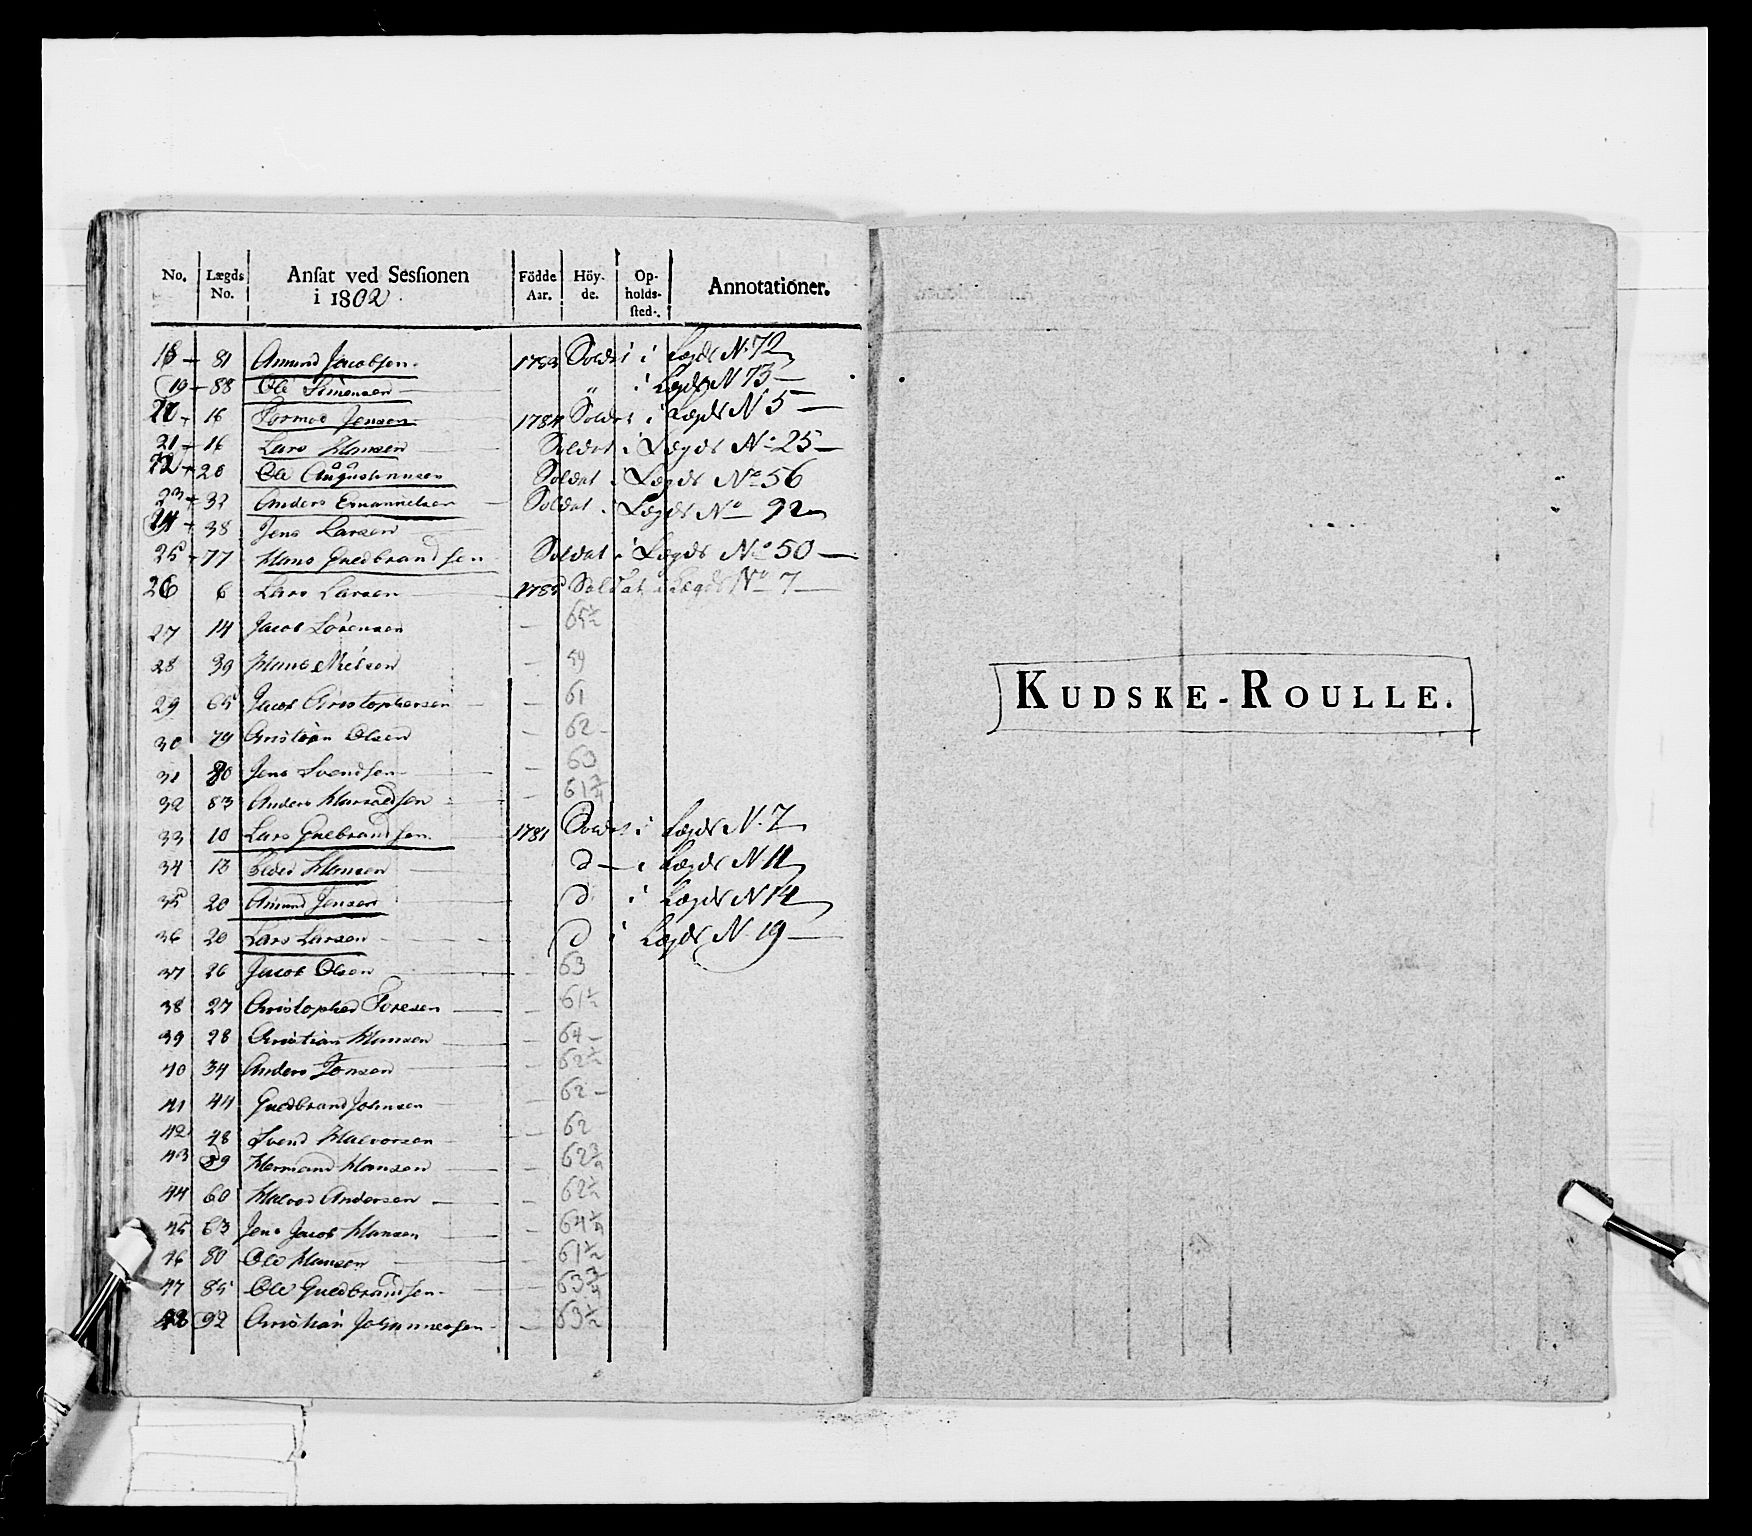 No. Lægds No. Ansat ved Sessionen i 1802. Födde Aar. Höyde. Opholds-sted. Annotationer.
18 81 Amund Jacobsen 1783 Soldat i Lægds N. 72
19 88 Ole Simensen " i Lægds N 73
16 Tormod Jensen 1784 Soldat i Lægds N 5
21 16 Lars Hansen Soldat i Lægds No 25
22 20 Ole Augustinusen Soldat i Lægds No 56
23 32 Anders Emanuelsen Soldat i Lægds No 92
24 38 Jens Larsen
25 77 Hans Guldbrandsen Soldat i Lægds No 50
26 6 Lars Larsen 1785 Soldat i Lægds No 7
27 14 Jacob Sörensen — 65½
28 39 Hans Nielsen — 59
29 65 Jacob Christophersen — 61
30 79 Christian Olsen — 62
31 80 Jens Svendsen — 63
32 83 Anders Haraldsen — 61¾
33 10 Lars Gulbrandsen 1781 Soldat i Lægds N. 7
34 13 Peder Hansen d — i Lægds N 11
35 20 Amund Jensen d i Lægds N 14
36 20 Lars Larsen d i Lægds N. 19
37 26 Jacob Olsen — 63
38 27 Christopher Toresen — 61½
39 28 Christian Hansen — 64
40 34 Anders Jonsen — 62½
41 44 Guldbrand Johnsen — 62
42 48 Svend Halvorsen — 62
43 59 Hermand Hansen — 62¾
44 60 Halvor Andersen — 62½
45 63 Jens Jacob Hansen — 64¼
46 80 Ole Hansen — 61½
47 85 Ole Guldbrandsen — 63¾
48 92 Christian Johannessen — 63½
KUDSKE-ROULLE.